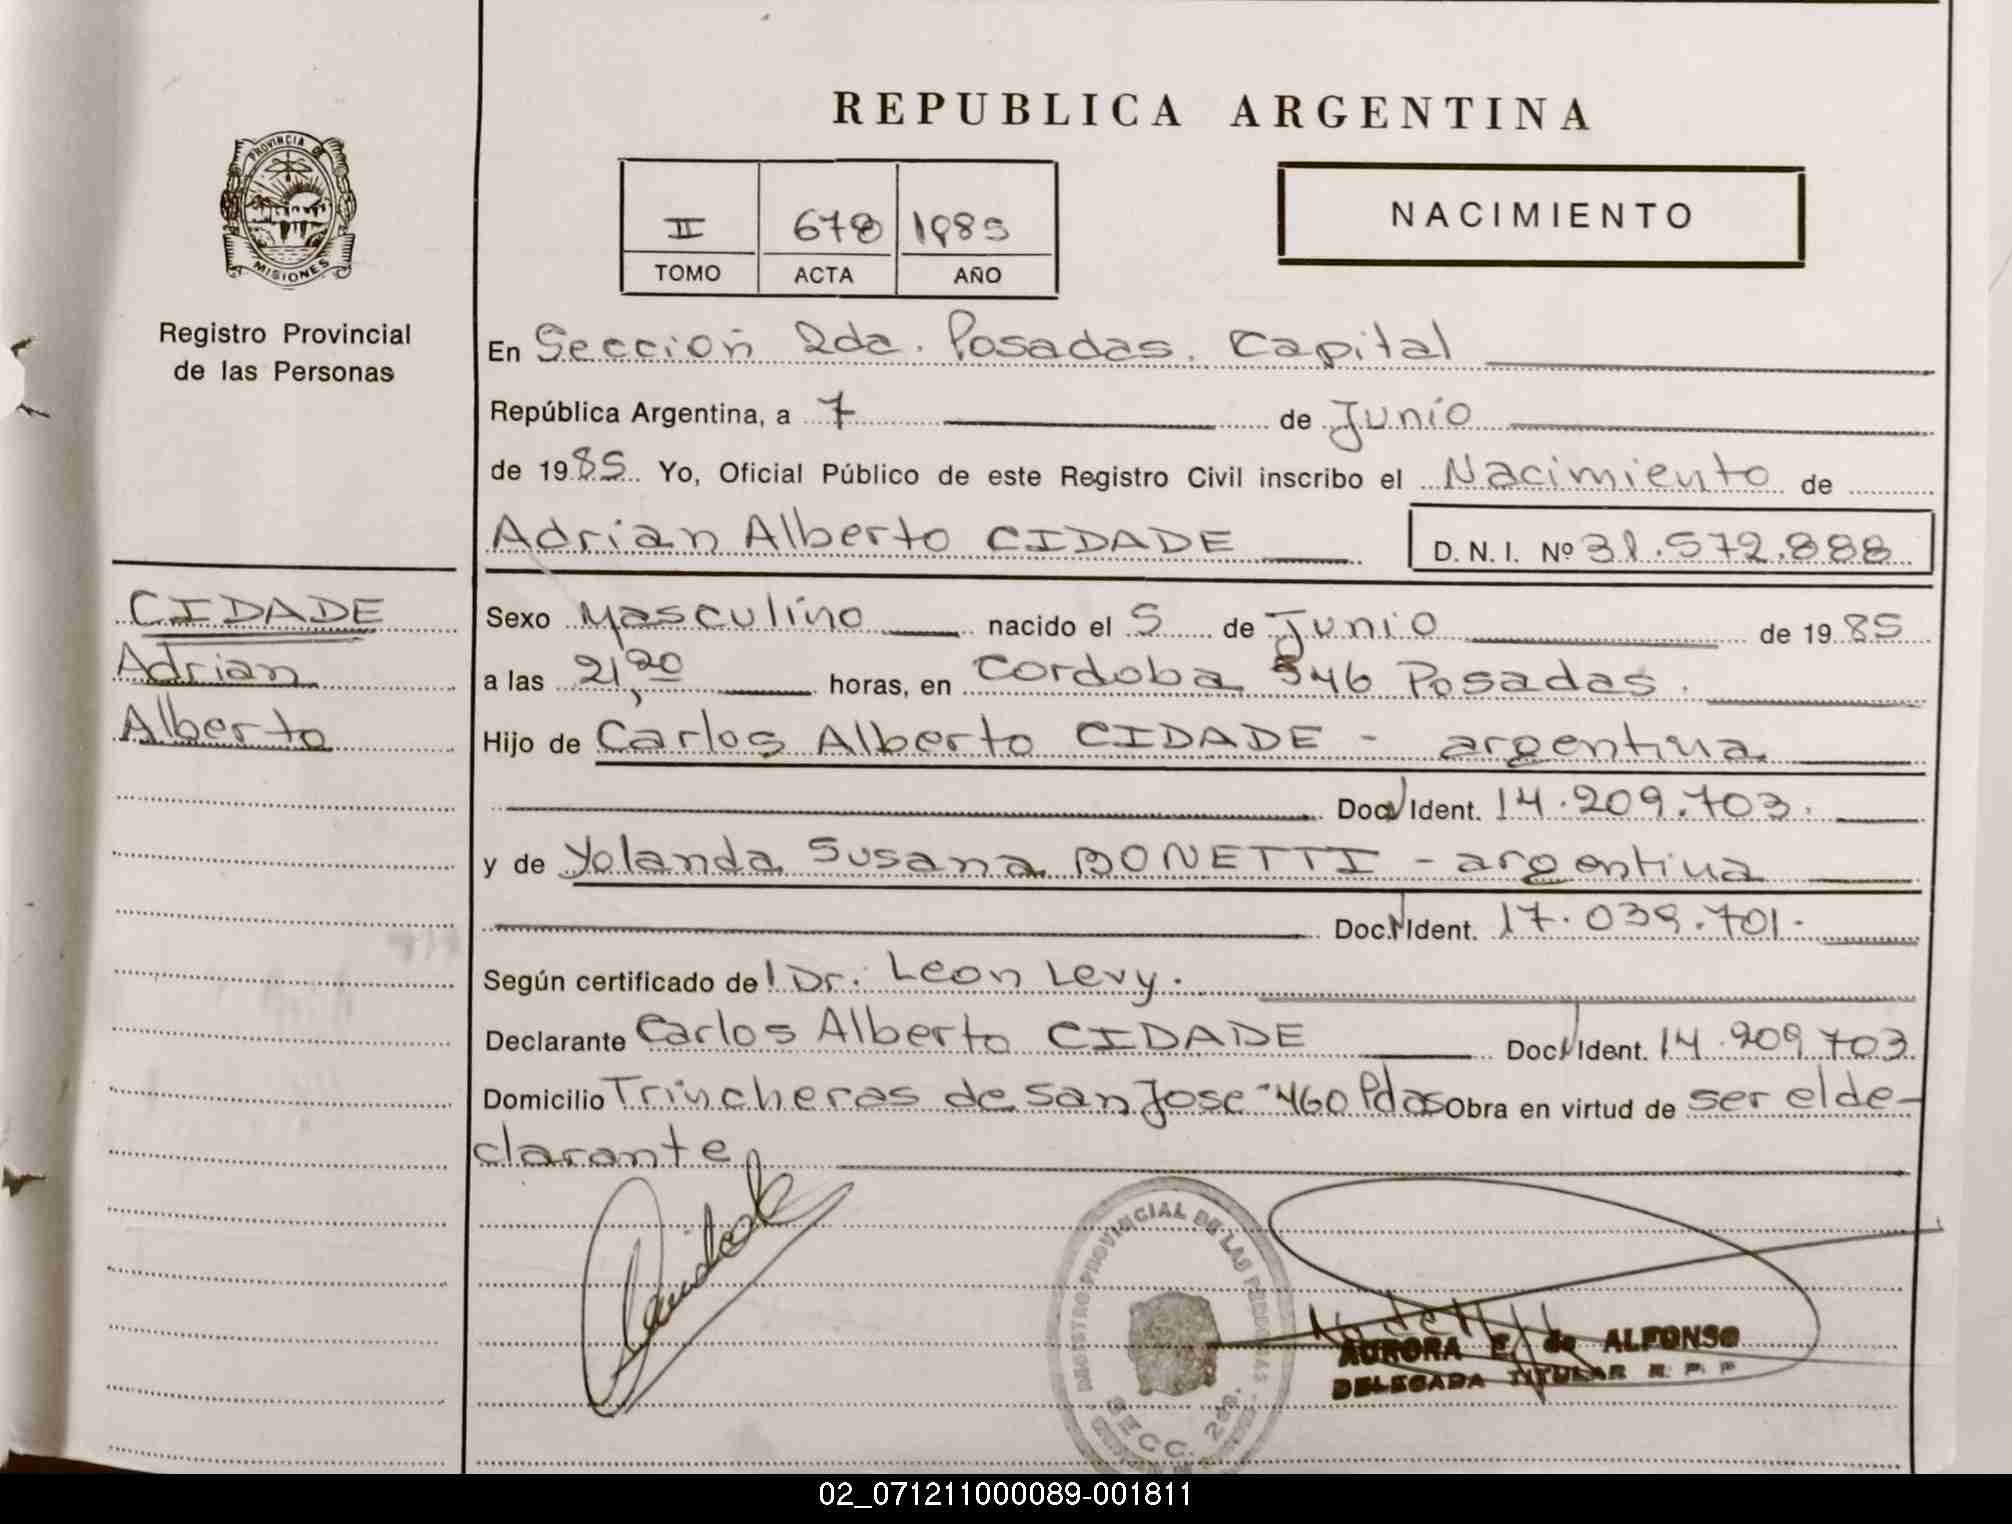 REPUBLICA ARGENTINA
PROVINCIA DE
MISIONES
Registro Provincial
de las Personas
II 678 1985
TOMO ACTA AÑO
NACIMIENTO
En Sección 2da. Posadas. Capital
República Argentina, a 7 de Junio
de 1985. Yo, Oficial Público de este Registro Civil inscribo el Nacimiento de
Adrian Alberto CIDADE D. N. I. Nº 31.572.888
CIDADE
Adrian
Alberto
Sexo Masculino nacido el 5 de Junio de 1985
a las 21,20 horas, en Cordoba 546 Posadas.
Hijo de Carlos Alberto CIDADE - argentina
Doc. Ident. 14.209.703.
y de Yolanda Susana BONETTI - argentina
Doc. Ident. 17.039.701.
Según certificado de Dr. Leon Levy.
Declarante Carlos Alberto CIDADE Doc. Ident. 14.209.703
Domicilio Trincheras de San Jose 460 Pdas Obra en virtud de ser el de-
clarante
REGISTRO PROVINCIAL DE LAS PERSONAS
SECC. 2da.
AURORA E. de ALFONSO
DELEGADA TITULAR R. P. P
02_071211000089-001811